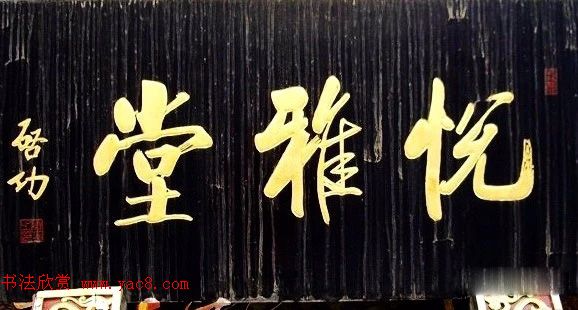 悦雅堂
启功
书法欣赏 www.yac8.com